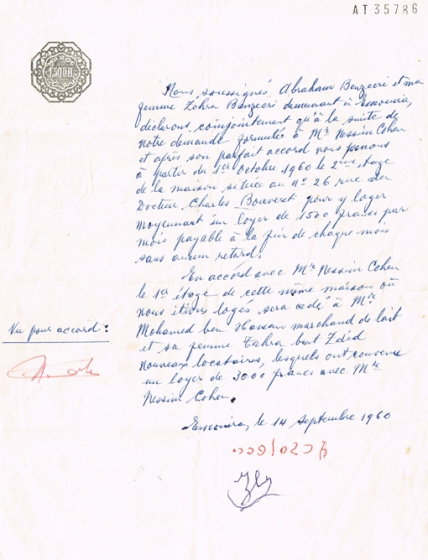 AT 35786
Nous soussignés Abraham Benzecri et ma
femme Zóhra Benzecri demeurant à Essouira,
déclarons conjointement qu'à la suite de
notre demande formulée à Mr Nessim Cohen
et après son parfait accord nous prenons
à partir du 1er Octobre 1960 le 2ème étage
de la maison située au no 26 rue du
Docteur Charles Bouveret pour y loger
moyennant un loyer de 1500 francs par
mois payable à la fin de chaque mois
sans aucun retard.
En accord avec Mr Nessim Cohen
le 1er étage de cette même maison où
nous étions logés sera cédé à Mr
Mohamed ben Hassan marchand de lait
et sa femme Zahra bent
nouveaux locataires, lesquels ont convenu
un loyer de 3000 francs avec Mr
Nessim Cohen.
Vu pour accord :
Essouira, le 14 Septembre 1960